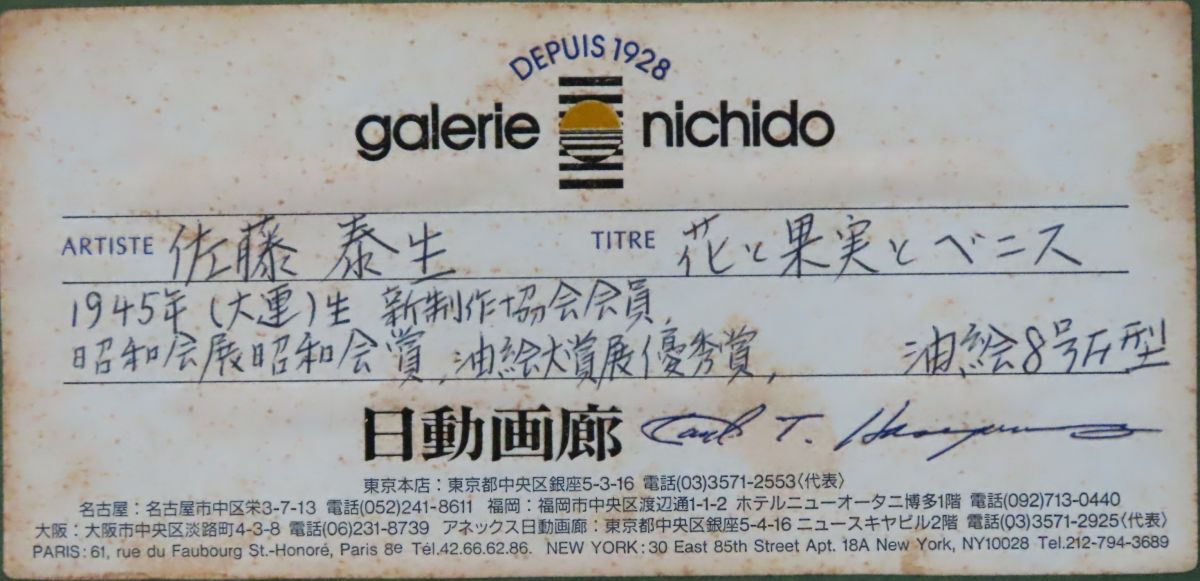 DEPUIS 1928
galerie nichido
ARTISTE 佐藤 泰生 TITRE 花と果実とベニス
1945年(大連)生 新制作協会会員,
昭和会展昭和会賞,油絵大賞展優秀賞, 油絵8号F型
日動画廊
東京本店:東京都中央区銀座5-3-16 電話(03)3571-2553〈代表〉
名古屋:名古屋市中区栄3-7-13 電話(052)241-8611 福岡:福岡市中央区渡辺通1-1-2 ホテルニューオータニ博多1階 電話(092)713-0440
大阪:大阪市中央区淡路町4-3-8 電話(06)231-8739 アネックス日動画廊:東京都中央区銀座5-4-16 ニュースキヤビル2階 電話(03)3571-2925〈代表〉
PARIS:61, rue du Faubourg St-Honoré, Paris 8e Tél.42.66.62.86. NEW YORK:30 East 85th Street Apt. 18A New York, NY10028 Tel.212-794-3689